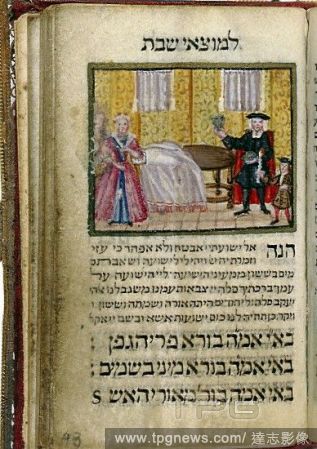 למוצאי שבת
הנה אל ישועתי אבטח ולא אפחד כי עזי
וזמרת יה יי ויהי לי לישועה ושאבתם
מים בששון ממעיני הישועה ליי הישועה על
עמך ברכתך סלה יי צבאות עמנו משגב לנו
יעקב סלה ליהודים היתה אורה ושמחה וששון
ויקר כן תהיה לנו כוס ישועות אשא ובשם יי אקרא
באי אמה בורא פרי הגפן:
באי אמה בורא מיני בשמים:
באי אמה בור' מאורי האש S
TPG
www.tpgnews.com/ 達志影像